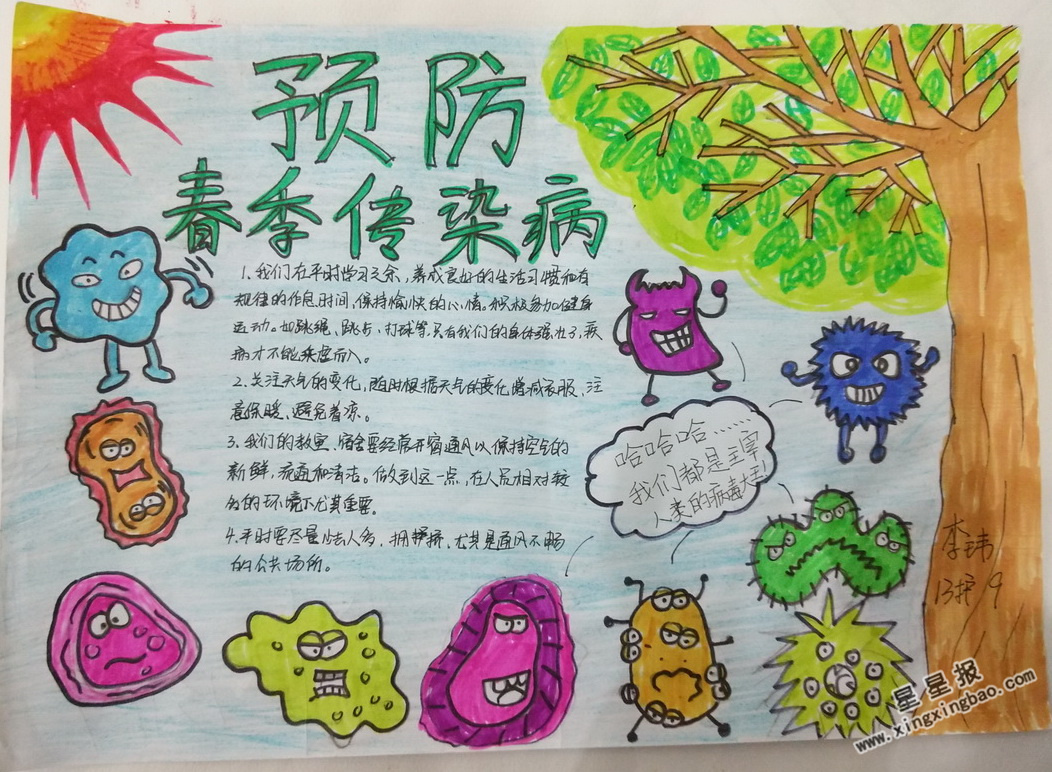 预防
春季传染病
1.我们在平时学习之余，养成良好的生活习惯和有
规律的作息时间，保持愉快的心情。积极参加健身
运动。如跳绳、跳高，打球等，只有我们的身体强壮了，疾
病才不能乘虚而入。
2.关注天气的变化，随时根据天气的变化增减衣服，注
意保暖，避免着凉。
3.我们的教室、宿舍要经常开窗通风以保持空气的
新鲜，流通和清洁。做到这一点，在人员相对较
多的环境下尤其重要。
4.平时要尽量少去人多，拥挤，尤其是通风不畅
的公共场所。
哈哈哈……
我们都是主宰
人类的病毒大王！
李玮
13护9
星星报
www.xingxingbao.com